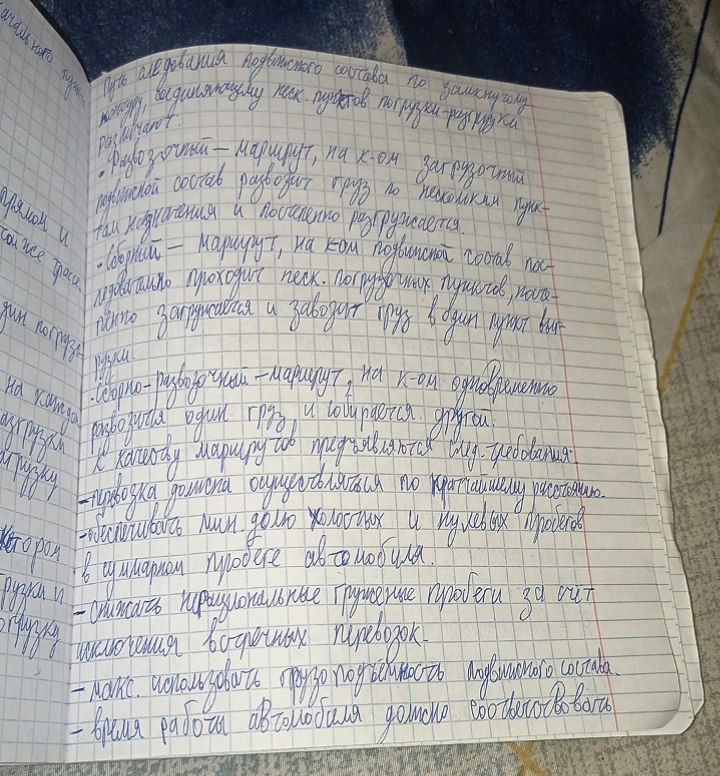 чального пунк-
прямом и
той же трассе
дин погруз-
на каждом
азгрузки
агрузку
котором
грузки и
огрузку
Путь следования подвижного состава по замкнутому
контуру, соединяющему неск. пунктов погрузки-разгрузки
различают:
• Развозочный – маршрут, на к-ом загрузочный
подвижной состав развозит груз по нескольким пунк-
там назначения и постепенно разгружается.
• Сборный – маршрут, на к-ом подвижной состав пос-
ледовательно проходит неск. погрузочных пунктов, посте-
пенно загружается и завозит груз в один пункт выг-
рузки.
• Сборно-развозочный – маршрут, на к-ом одновременно
развозится один груз, и собирается другой.
К качеству маршрутов предъявляются след. требования:
– перевозка должна осуществляться по кратчайшему расстоянию.
– обеспечивать мин. долю холостых и нулевых пробегов
в суммарном пробеге автомобиля.
– снижать нерациональные груженые пробеги за счёт
исключения встречных перевозок.
– макс. использовать грузоподъёмность подвижного состава.
– время работы автомобиля должно соответствовать